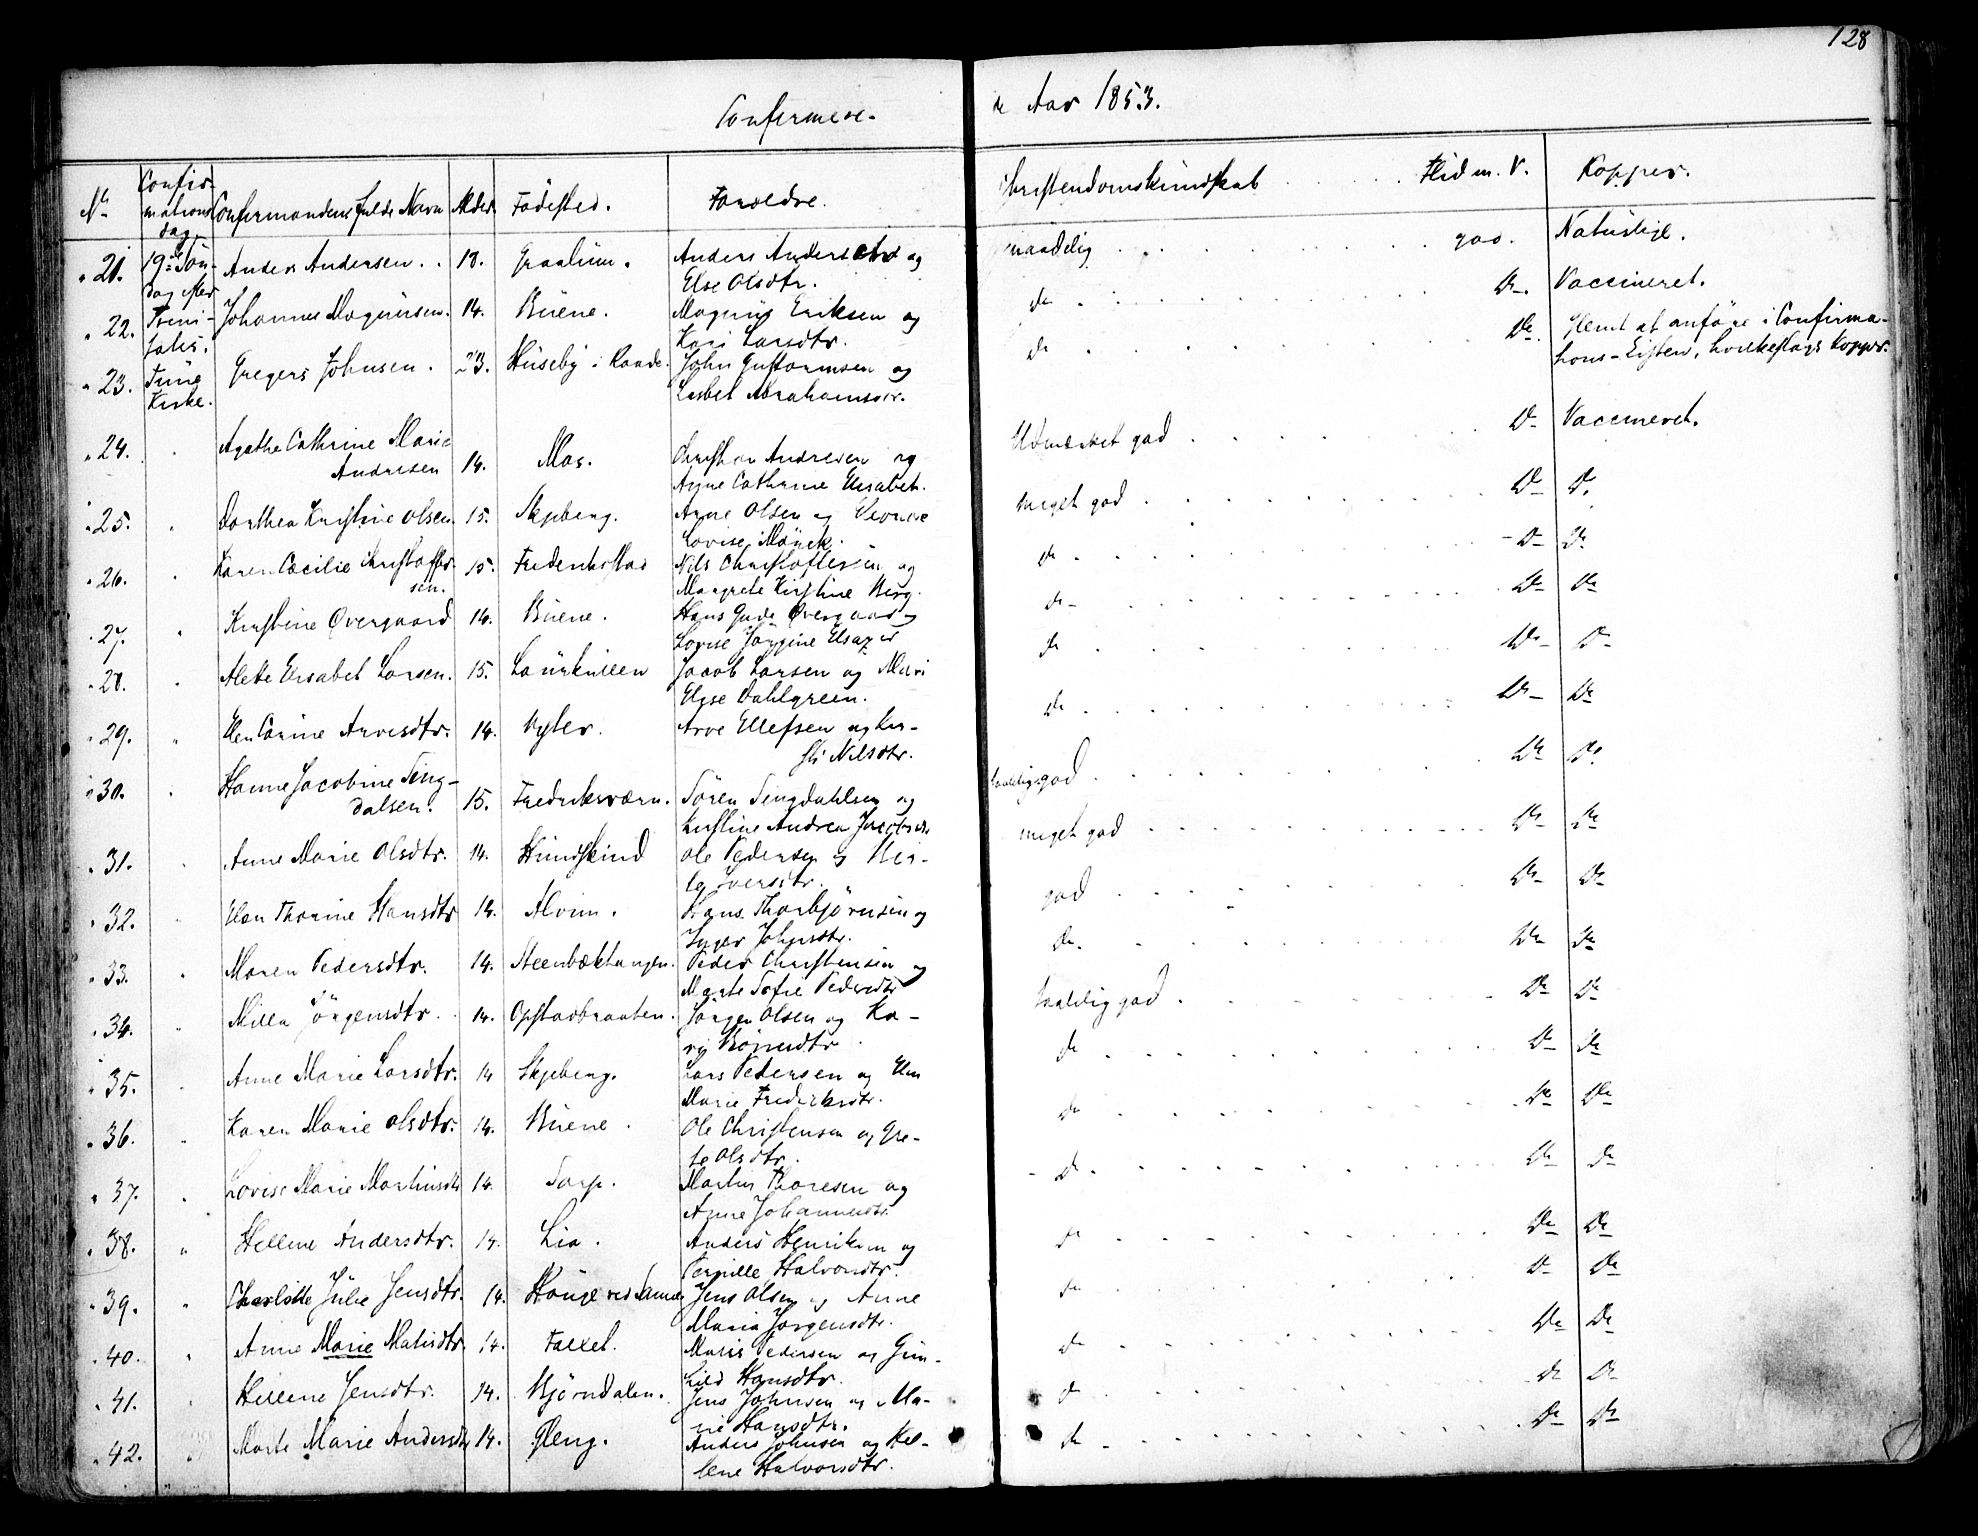 128
Confirmere- de Aar 1853.
No Confirmations dag. Confirmandens fulde Navn Alder Fødested. Forældre. Christendomskundskab . . . . . Flid m. V. Kopper.
21. 19de Søndag efter Trinitatis. Tune Kirke. Anders Andersen. 18. Graalum. Anders Andersen og
Else Olsdtr. maadelig god. Naturlige.
22. Johannes Magnusen. 14. Buene. Magnus Eriksen og
Kari Larsdtr. do Do. Vaccineret.
23. Gregers Johnsen. 23. Huseby i Raade. John Guttormsen og
Lisbet Abrahamsdr. do Do. Glemt at anføre i Confirma-
tions-Listen, hvilkeslags Kopper.
24. Agathe Cathrine Marie
Andresen 14. Mos. Christian Andresen og
Anne Cathrine Elisabeth. Udmærket god Do Vaccineret.
25. Dorthea Kristine Olsen. 15. Skjeberg. Arne Olsen og
Lovise Münck. meget god Do Do
26. Karen Cæcilie Christoffer-
sen. 15. Frederikstad Nils Christoffersen og
Margrete Kirstine Berg. do Do Do
27. Kristine Overgaard 14. Buene. Hans Gude Overgaard og
Lovise Jørgine do Do Do
28. Alette Elisabet Larsen. 15. Laurkullen Jacob Larsen og Mari
Elise Dahlgreen. do Do Do
29. Elen Carine Arvesdtr. 14. Arve Ellefsen og Kir-
sti Nilsdtr. do Do Do
30. Hanne Jacobine Ting-
dalsen. 15. Fredriksværn. Søren Tingdahlsen og
Kristine Andrea temmelig god Do Do
31. Anne Marie Olsdtr. 14. Hundskind Ole Pedersen og
Iversdtr. meget god Do Do
32. Elen Thorine Hansdtr 14. Alvim. Hans Thorbjørnsen og
Inger Johnsdtr. god Do Do
33. Maren Pedersdtr. 14. Steenbæktangen. Peder Christensen og
Marte Sofie Pedersdtr do. Do Do
34. Milla Jörgensdtr. 14. Opstadbraaten. Jörgen Olsen og Ka-
ri temmelig god Do Do
35. Anne Marie Larsdtr. 14 Skjeberg. Lars Pedersen og Elen
Marie Frederiksdtr. do Do Do
36. Karen Marie Olsdtr. 14. Buene. Ole Christensen og Gre-
te Olsdtr. do Do Do
37. Lovise Marie Martinusdtr 14. Torp. Martin Thoresen og
Anne Johannesdtr. do. Do Do
38. Hellene Andersdtr. 14. Lia. Anders Henriksen og
Pernille Halvorsdtr. do Do Do
39. Charlotte Julie Jensdtr. 14. Houge ved Jens Olsen og Anne
Maria Jørgensdtr. do Do Do
40. Anne Marie Matisdtr. 14. Pedersen og Gun-
hild Hansdtr. do Do Do
41. Hellene Jensdtr. 14. Bjørndalen. Jens Johnsen og Ma-
rie Hansdtr. do Do Do
42. Marte Marie Andersdtr 14. Gleng. Anders Johnsen og Hel-
lene Halvorsdtr. do Do Do